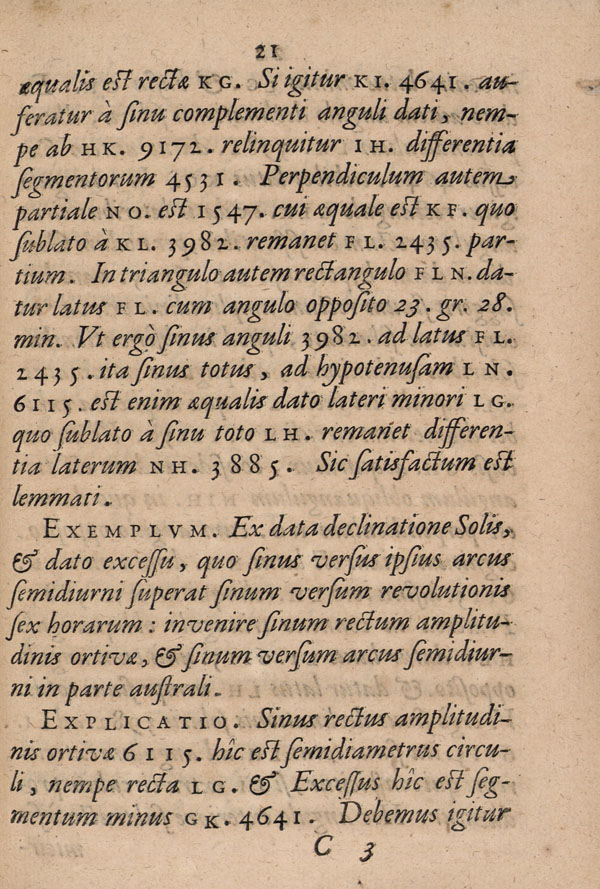 21
æqualis est rectæ KG. Si igitur KI. 4641. au-
feratur à sinu complementi anguli dati, nem-
pe ab HK. 9172. relinquitur IH. differentia
segmentorum 4531. Perpendiculum autem
partiale NO. est 1547. cui æquale est KF. quo
sublato à KL. 3982. remanet FL. 2435. par-
tium. In triangulo autem rectangulo FLN. da-
tur latus FL. cum angulo opposito 23. gr. 28.
min. Vt ergò sinus anguli 3982. ad latus FL.
2435. ita sinus totus, ad hypotenusam LN.
6115. est enim æqualis dato lateri minori LG.
quo sublato à sinu toto LH. remanet differen-
tia laterum NH. 3885. Sic satisfactum est
lemmati.
EXEMPLVM. Ex data declinatione Solis,
& dato excessu, quo sinus versus ipsius arcus
semidiurni superat sinum versum revolutionis
sex horarum: invenire sinum rectum amplitu-
dinis ortivæ, & sinum versum arcus semidiur-
ni in parte australi.
EXPLICATIO. Sinus rectus amplitudi-
nis ortivæ 6115. hîc est semidiametrus circu-
li, nempe recta LG. & Excessus hîc est seg-
mentum minus GK. 4641. Debemus igitur
C 3